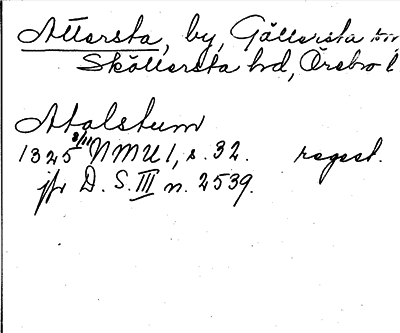 Attersta, by, Gällersta sn
Sköllersta hd, Örebro l
Atalstum
1325 3/11 NMU 1, s. 32. regest.
jfr D. S. III n. 2539.